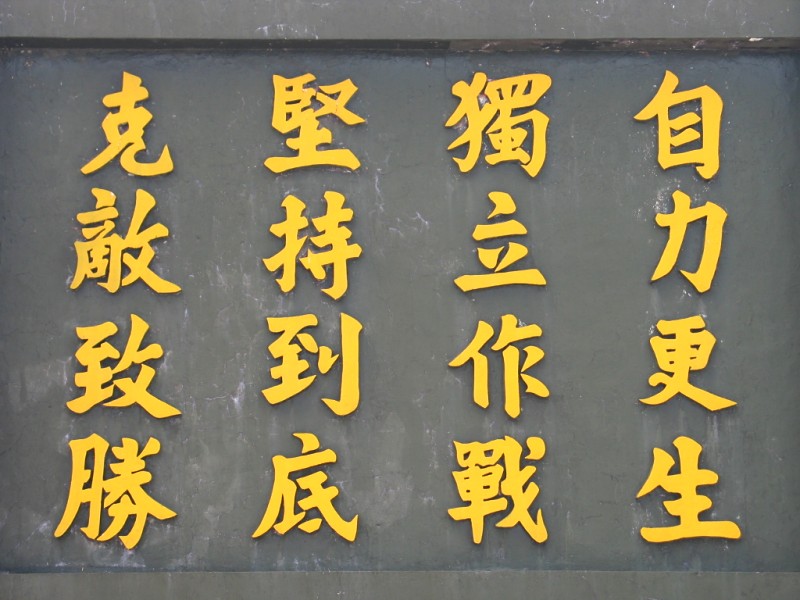 自力更生
獨立作戰
堅持到底
克敵致勝